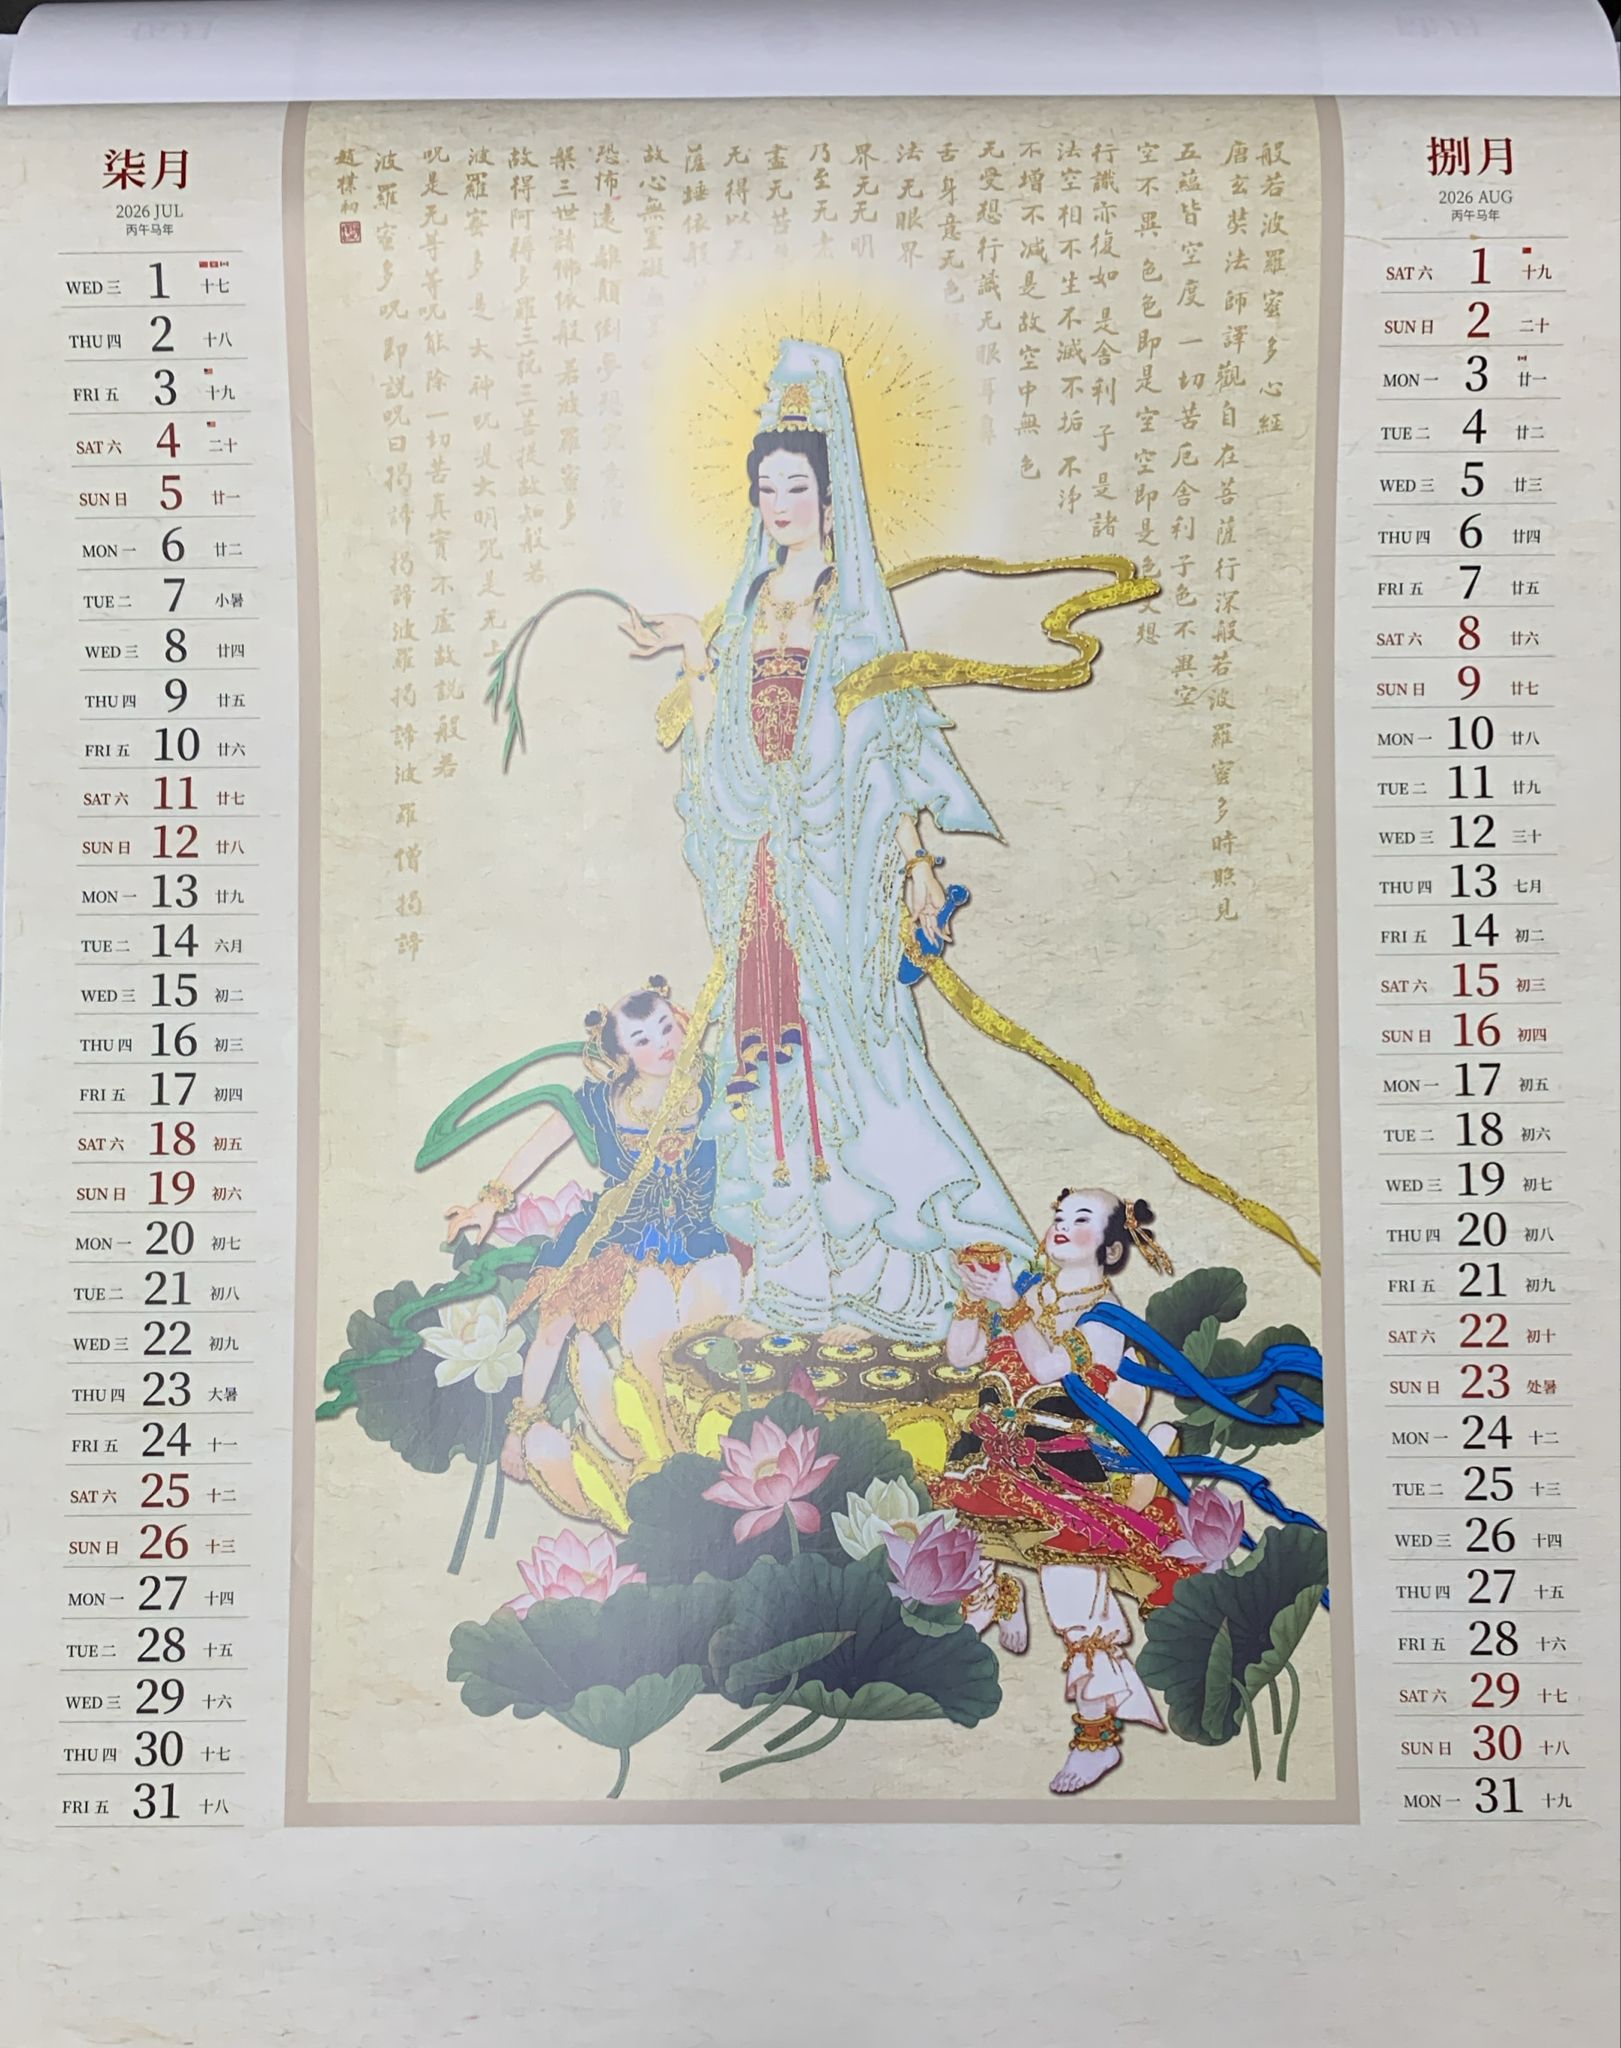 柒月
2026 JUL
丙午马年
WED 三 1 十七
THU 四 2 十八
FRI 五 3 十九
SAT 六 4 二十
SUN 日 5 廿一
MON 一 6 廿二
TUE 二 7 小暑
WED 三 8 廿四
THU 四 9 廿五
FRI 五 10 廿六
SAT 六 11 廿七
SUN 日 12 廿八
MON 一 13 廿九
TUE 二 14 六月
WED 三 15 初二
THU 四 16 初三
FRI 五 17 初四
SAT 六 18 初五
SUN 日 19 初六
MON 一 20 初七
TUE 二 21 初八
WED 三 22 初九
THU 四 23 大暑
FRI 五 24 十一
SAT 六 25 十二
SUN 日 26 十三
MON 一 27 十四
TUE 二 28 十五
WED 三 29 十六
THU 四 30 十七
FRI 五 31 十八
般若波羅蜜多心經
唐玄奘法師譯觀自在菩薩行深般若波羅蜜多時照見
五蘊皆空度一切苦厄舍利子色不異空
空不異色色即是空空即是色受想
行識亦復如是舍利子是諸
法空相不生不滅不垢不淨
不增不減是故空中無色
无受想行識无眼耳鼻
舌身意无色
法无眼界
界无无明
乃至无老
盡无苦
无得以无
薩埵依般
故心無罣礙
恐怖遠離顛倒夢想究竟涅
槃三世諸佛依般若波羅蜜多
故得阿耨多羅三藐三菩提故知般若
波羅蜜多是大神咒是大明咒是无上
咒是无等等咒能除一切苦真實不虛故説般若
波羅蜜多咒即説咒曰揭諦揭諦波羅揭諦波羅僧揭諦
趙樸初
捌月
2026 AUG
丙午马年
SAT 六 1 十九
SUN 日 2 二十
MON 一 3 廿一
TUE 二 4 廿二
WED 三 5 廿三
THU 四 6 廿四
FRI 五 7 廿五
SAT 六 8 廿六
SUN 日 9 廿七
MON 一 10 廿八
TUE 二 11 廿九
WED 三 12 三十
THU 四 13 七月
FRI 五 14 初二
SAT 六 15 初三
SUN 日 16 初四
MON 一 17 初五
TUE 二 18 初六
WED 三 19 初七
THU 四 20 初八
FRI 五 21 初九
SAT 六 22 初十
SUN 日 23 处暑
MON 一 24 十二
TUE 二 25 十三
WED 三 26 十四
THU 四 27 十五
FRI 五 28 十六
SAT 六 29 十七
SUN 日 30 十八
MON 一 31 十九